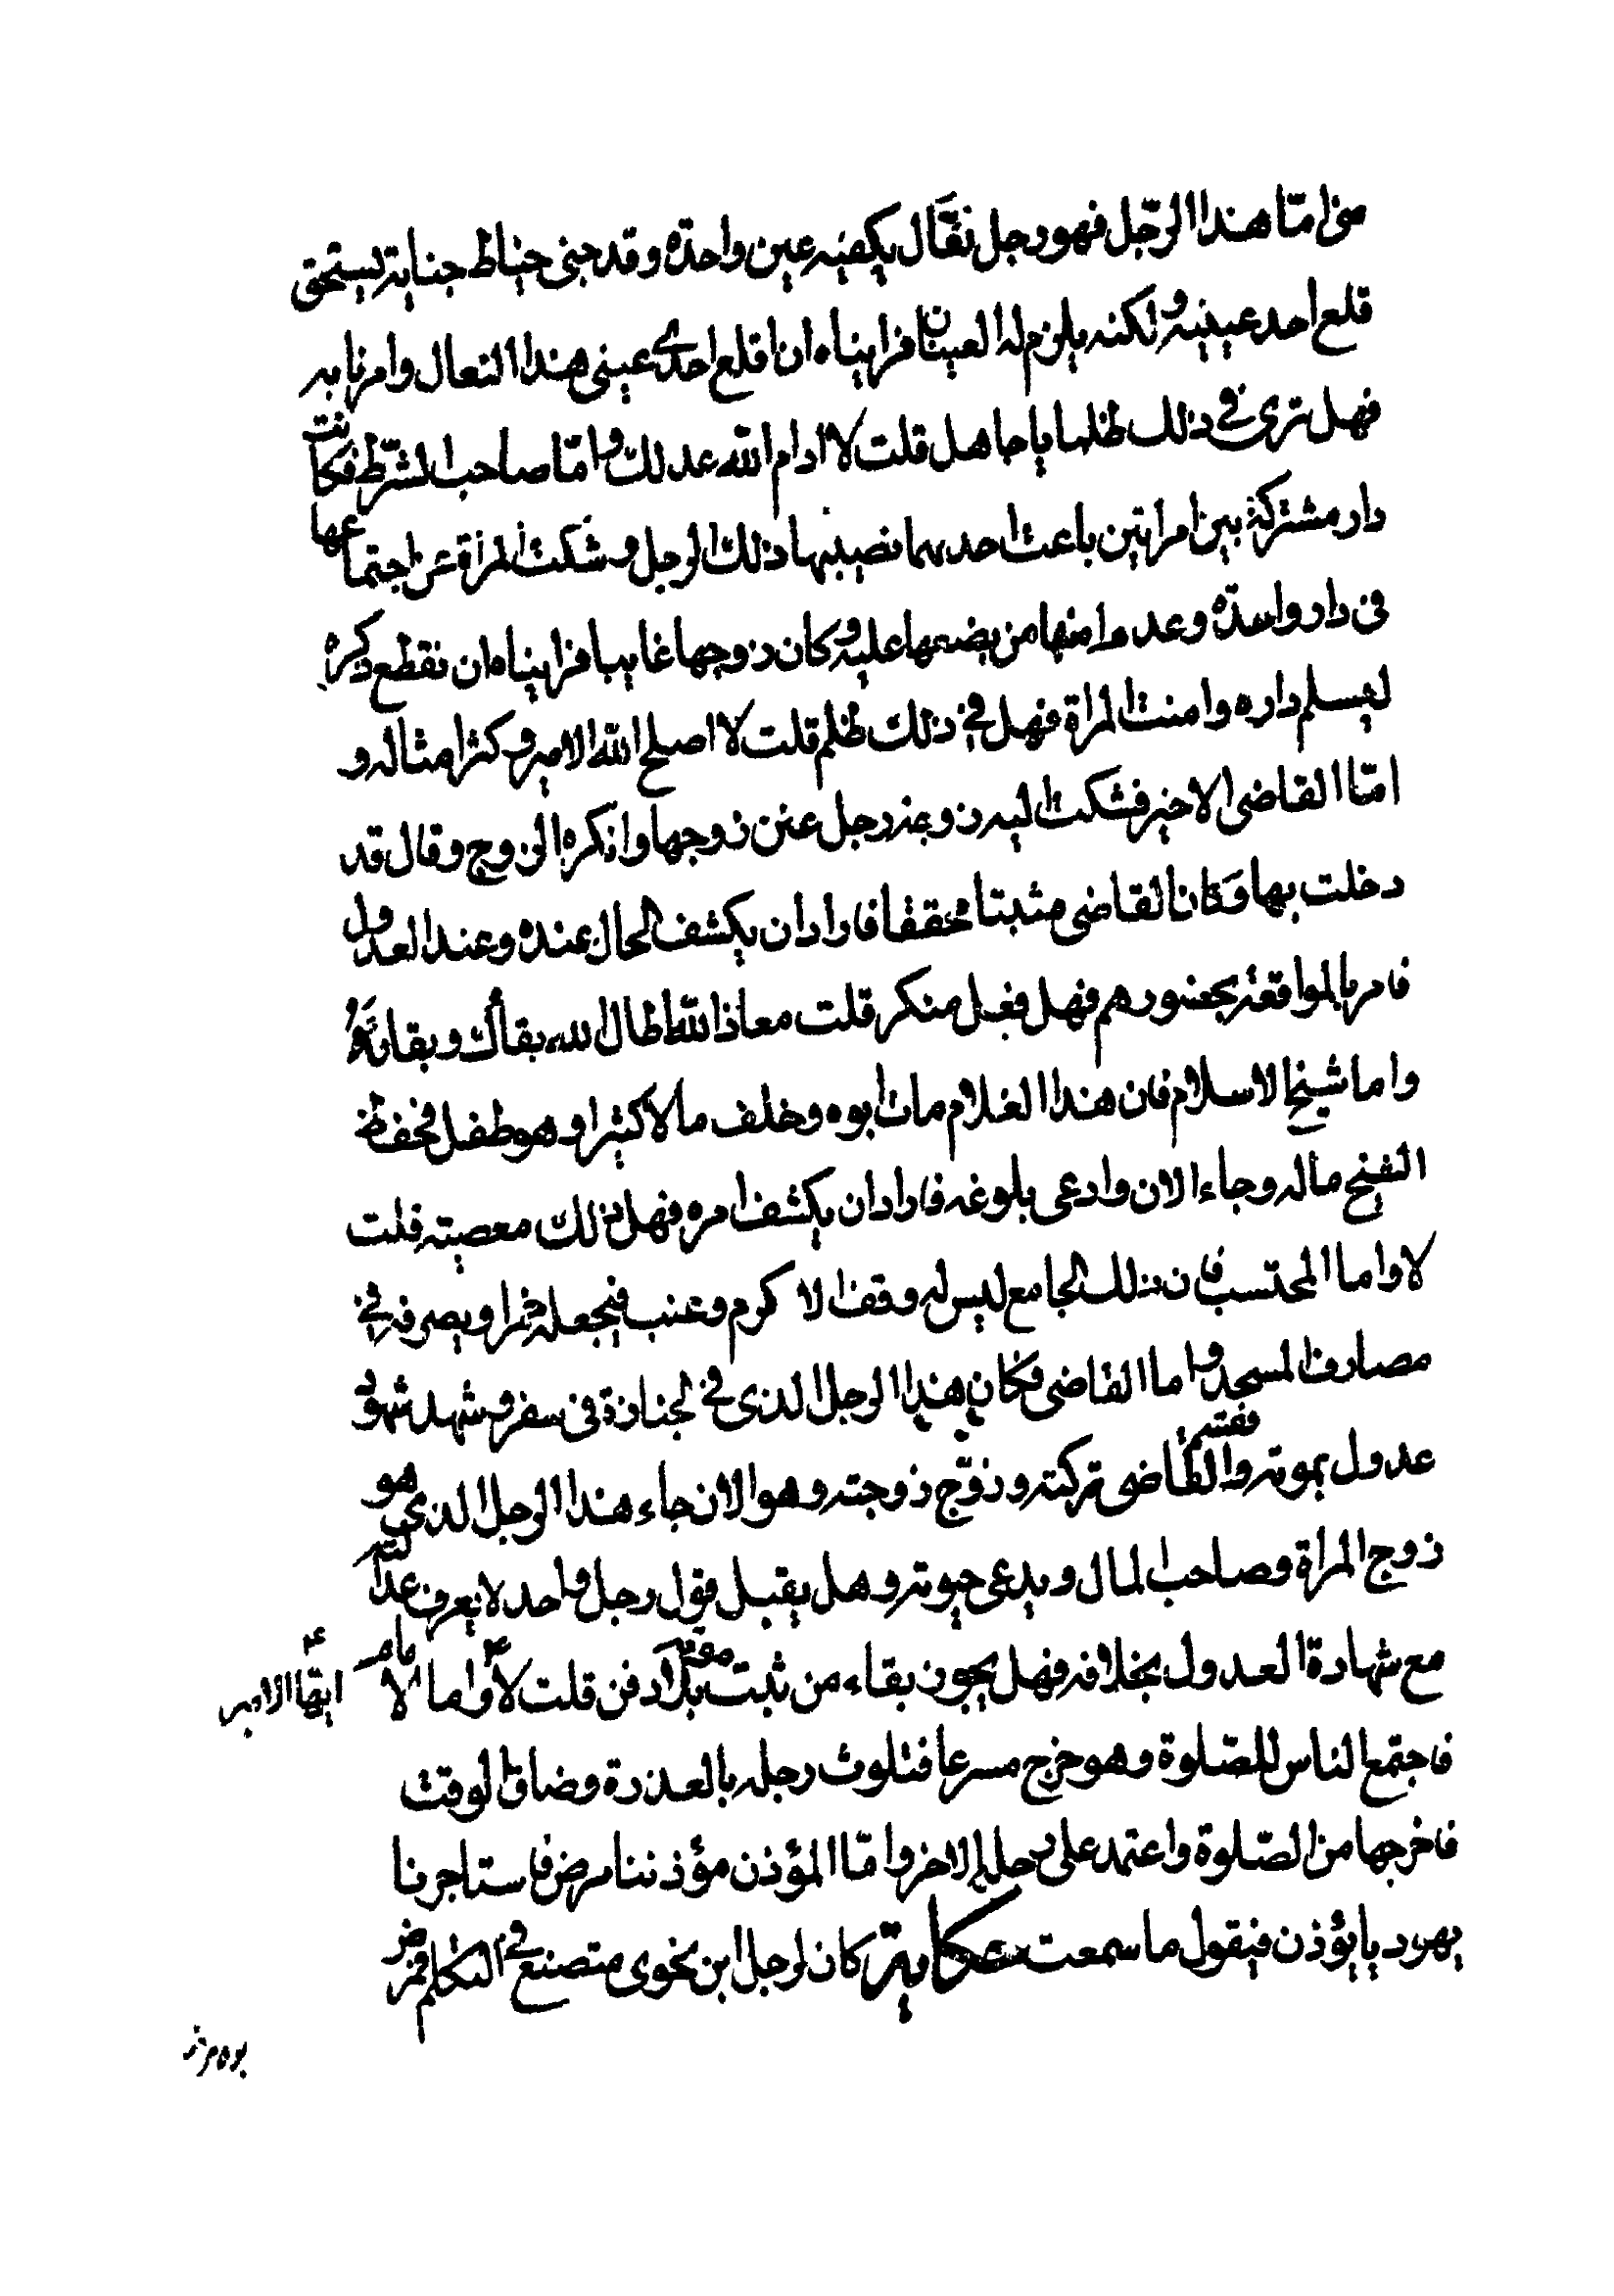 منی امّا هذا الرّجل فهو رجل نعّال يكفيه عين واحدة وقد جنی خياط جناية يستحق
قلع احد عينيه ولكنه يلزم له العينان فراينا ان اقلع احدی عينی هذا النعال وامرنا به
فهل تری فی ذلك ظلما يا جاهل قلت لا ادام الله عدلك وامّا صاحب الشرّط فكانت
دار مشتركة بين امراتين باعت احديهما نصيبها ذلك الرجل وشكت المراة عن اجتماعها
فی دار واحدة وعدم امنها من بضعها عليه وكان زوجها غايبا فراينا ان نقطع ذكره
ليسلم داره وامنت المراة فهل فی ذلك ظلم قلت لا اصلح الله الامير وكثر امثاله و
امّا القاضی الاخير فشكت اليه زوجة رجل عنن زوجها وانكره الزوج وقال قد
دخلت بها وكان القاضی مثبتا محققا فاراد ان يكشف الحال عنده وعند العدول
فامر بالمواقعة بحضورهم فهل فعل منكر قلت معاذ الله اطال الله بقاك وبقائه
واما شيخ الاسلام فان هذا الغلام مات ابوه وخلف مالا كثيرا وهو طفل فحفظ
الشيخ ماله وجاء الان وادعی بلوغه فاراد ان يكشف امره فهل ذلك معصية قلت
لا واما المحتسب فان ذلك الجامع ليس له وقف الا كرم وعنب فيجعله خمرا ويصرفه فی
مصارف المسجد واما القاضی فكان هذا الرجل الذی فی الجنازة فی سفر وشهد شهود
عدول بموته والقاضی فقسم تركته وزوّج زوجته وهو الان جاء هذا الرجل الذی هو
زوج المراة وصاحب المال ويدعی حيوته وهل يقبل قول رجل واحد لا يعرف عدالته
مع شهادة العدول بخلافه فهل يجوز بقاء من ثبت موته بلا دفن قلت لا واما الامام ايها الامير
فاجتمع الناس للصّلوة وهو خرج مسرعا فتلوث رجله بالعذرة وضاق الوقت
فاخرجها من الصّلوة واعتمد علی رجله الاخر وامّا المؤذن مؤذننا مرض فاستاجرنا
يهوديا يؤذن فيقول ما سمعت حكاية كان لرجل ابن نحوی متصنع فی التكلم فمرض